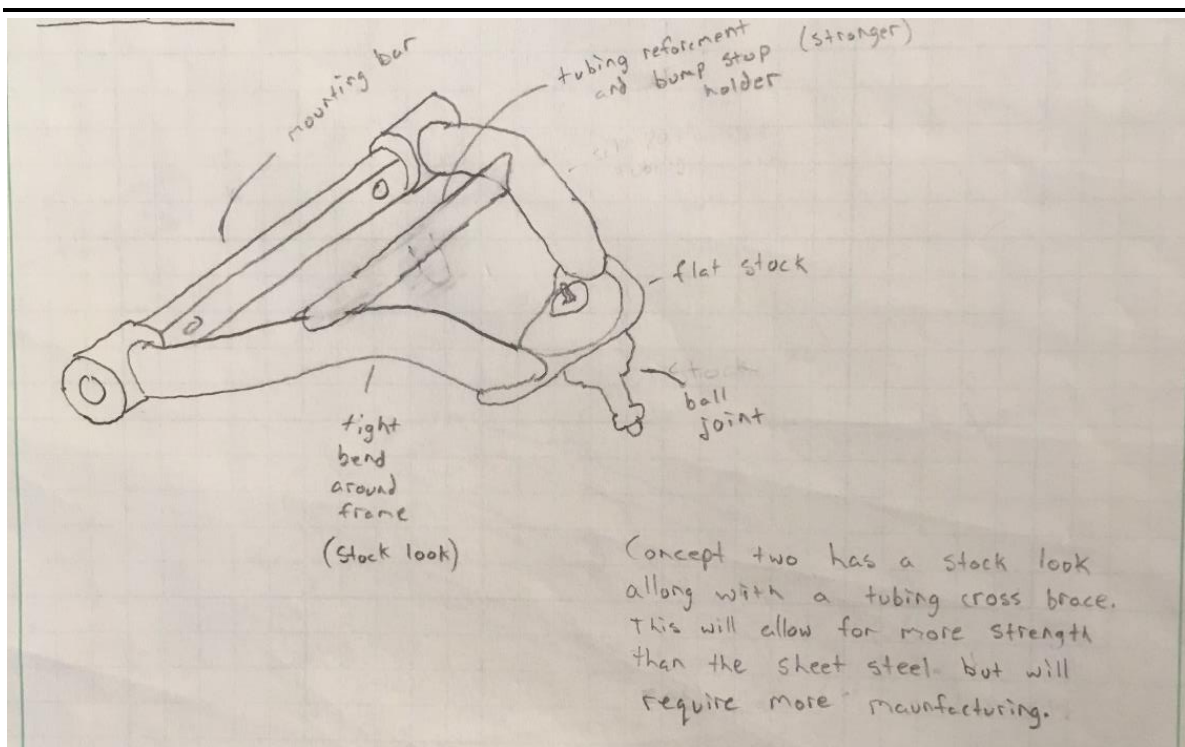 mounting bar
tubing reforcment (stronger)
and bump stop
holder
flat stock
ball
joint
tight
bend
around
frame
(Stock look)
Concept two has a stock look
allong with a tubing cross brace.
This will allow for more strength
than the sheet steel but will
require more maunfacturing.